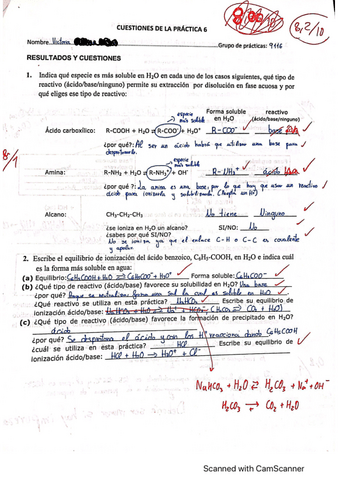 CUESTIONES DE LA PRÁCTICA 6
8,2/10
Nombre Victoria
Grupo de prácticas: 9116
RESULTADOS Y CUESTIONES
1. Indica qué especie es más soluble en H2O en cada uno de los casos siguientes, qué tipo de
reactivo (ácido/base/ninguno) permite su extracción por disolución en fase acuosa y por
qué eliges ese tipo de reactivo:
especie más soluble
Forma soluble en H2O
reactivo (ácido/base/ninguno)
Ácido carboxílico: R-COOH + H2O ⇌ R-COO- + H3O+ R-COO- base
¿por qué?: Al ser un ácido habrá que utilizar una base para
desprotonarlo.
especie más soluble
Amina: R-NH2 + H2O ⇌ R-NH3+ + OH- R-NH3+ ácido
¿por qué?: La amina es una base, por lo que hay que usar un reactivo
ácido para ionizarla y
Alcano: CH3-CH2-CH3 No tiene Ninguno
¿se ioniza en H2O un alcano? SI/NO: No
¿sabes por qué SI/NO?
No se ioniza ya que el enlace C-H o C-C es covalente
y apolar
2. Escribe el equilibrio de ionización del ácido benzoico, C6H5-COOH, en H2O e indica cuál
es la forma más soluble en agua:
(a) Equilibrio: C6H5COOH + H2O ⇌ C6H5COO- + H3O+ Forma soluble: C6H5COO-
(b) ¿Qué tipo de reactivo (ácido/base) favorece su solubilidad en H2O? Una base
¿por qué? Porque se forma una sal la cual es soluble en H2O
¿qué reactivo se utiliza en esta práctica? NaHCO3 Escribe su equilibrio de
ionización ácido/base:
(c) ¿Qué tipo de reactivo (ácido/base) favorece la formación de precipitado en H2O?
ácido
¿por qué? Se desprotona el ácido y con los H+ reacciona dando C6H5COOH
¿cuál se utiliza en esta práctica? HCl Escribe su equilibrio de
ionización ácido/base: HCl + H2O → H3O+ + Cl-
NaHCO3 + H2O ⇌ H2CO3 + Na+ + OH-
H2CO3 ⇌ CO2 + H2O
Scanned with CamScanner